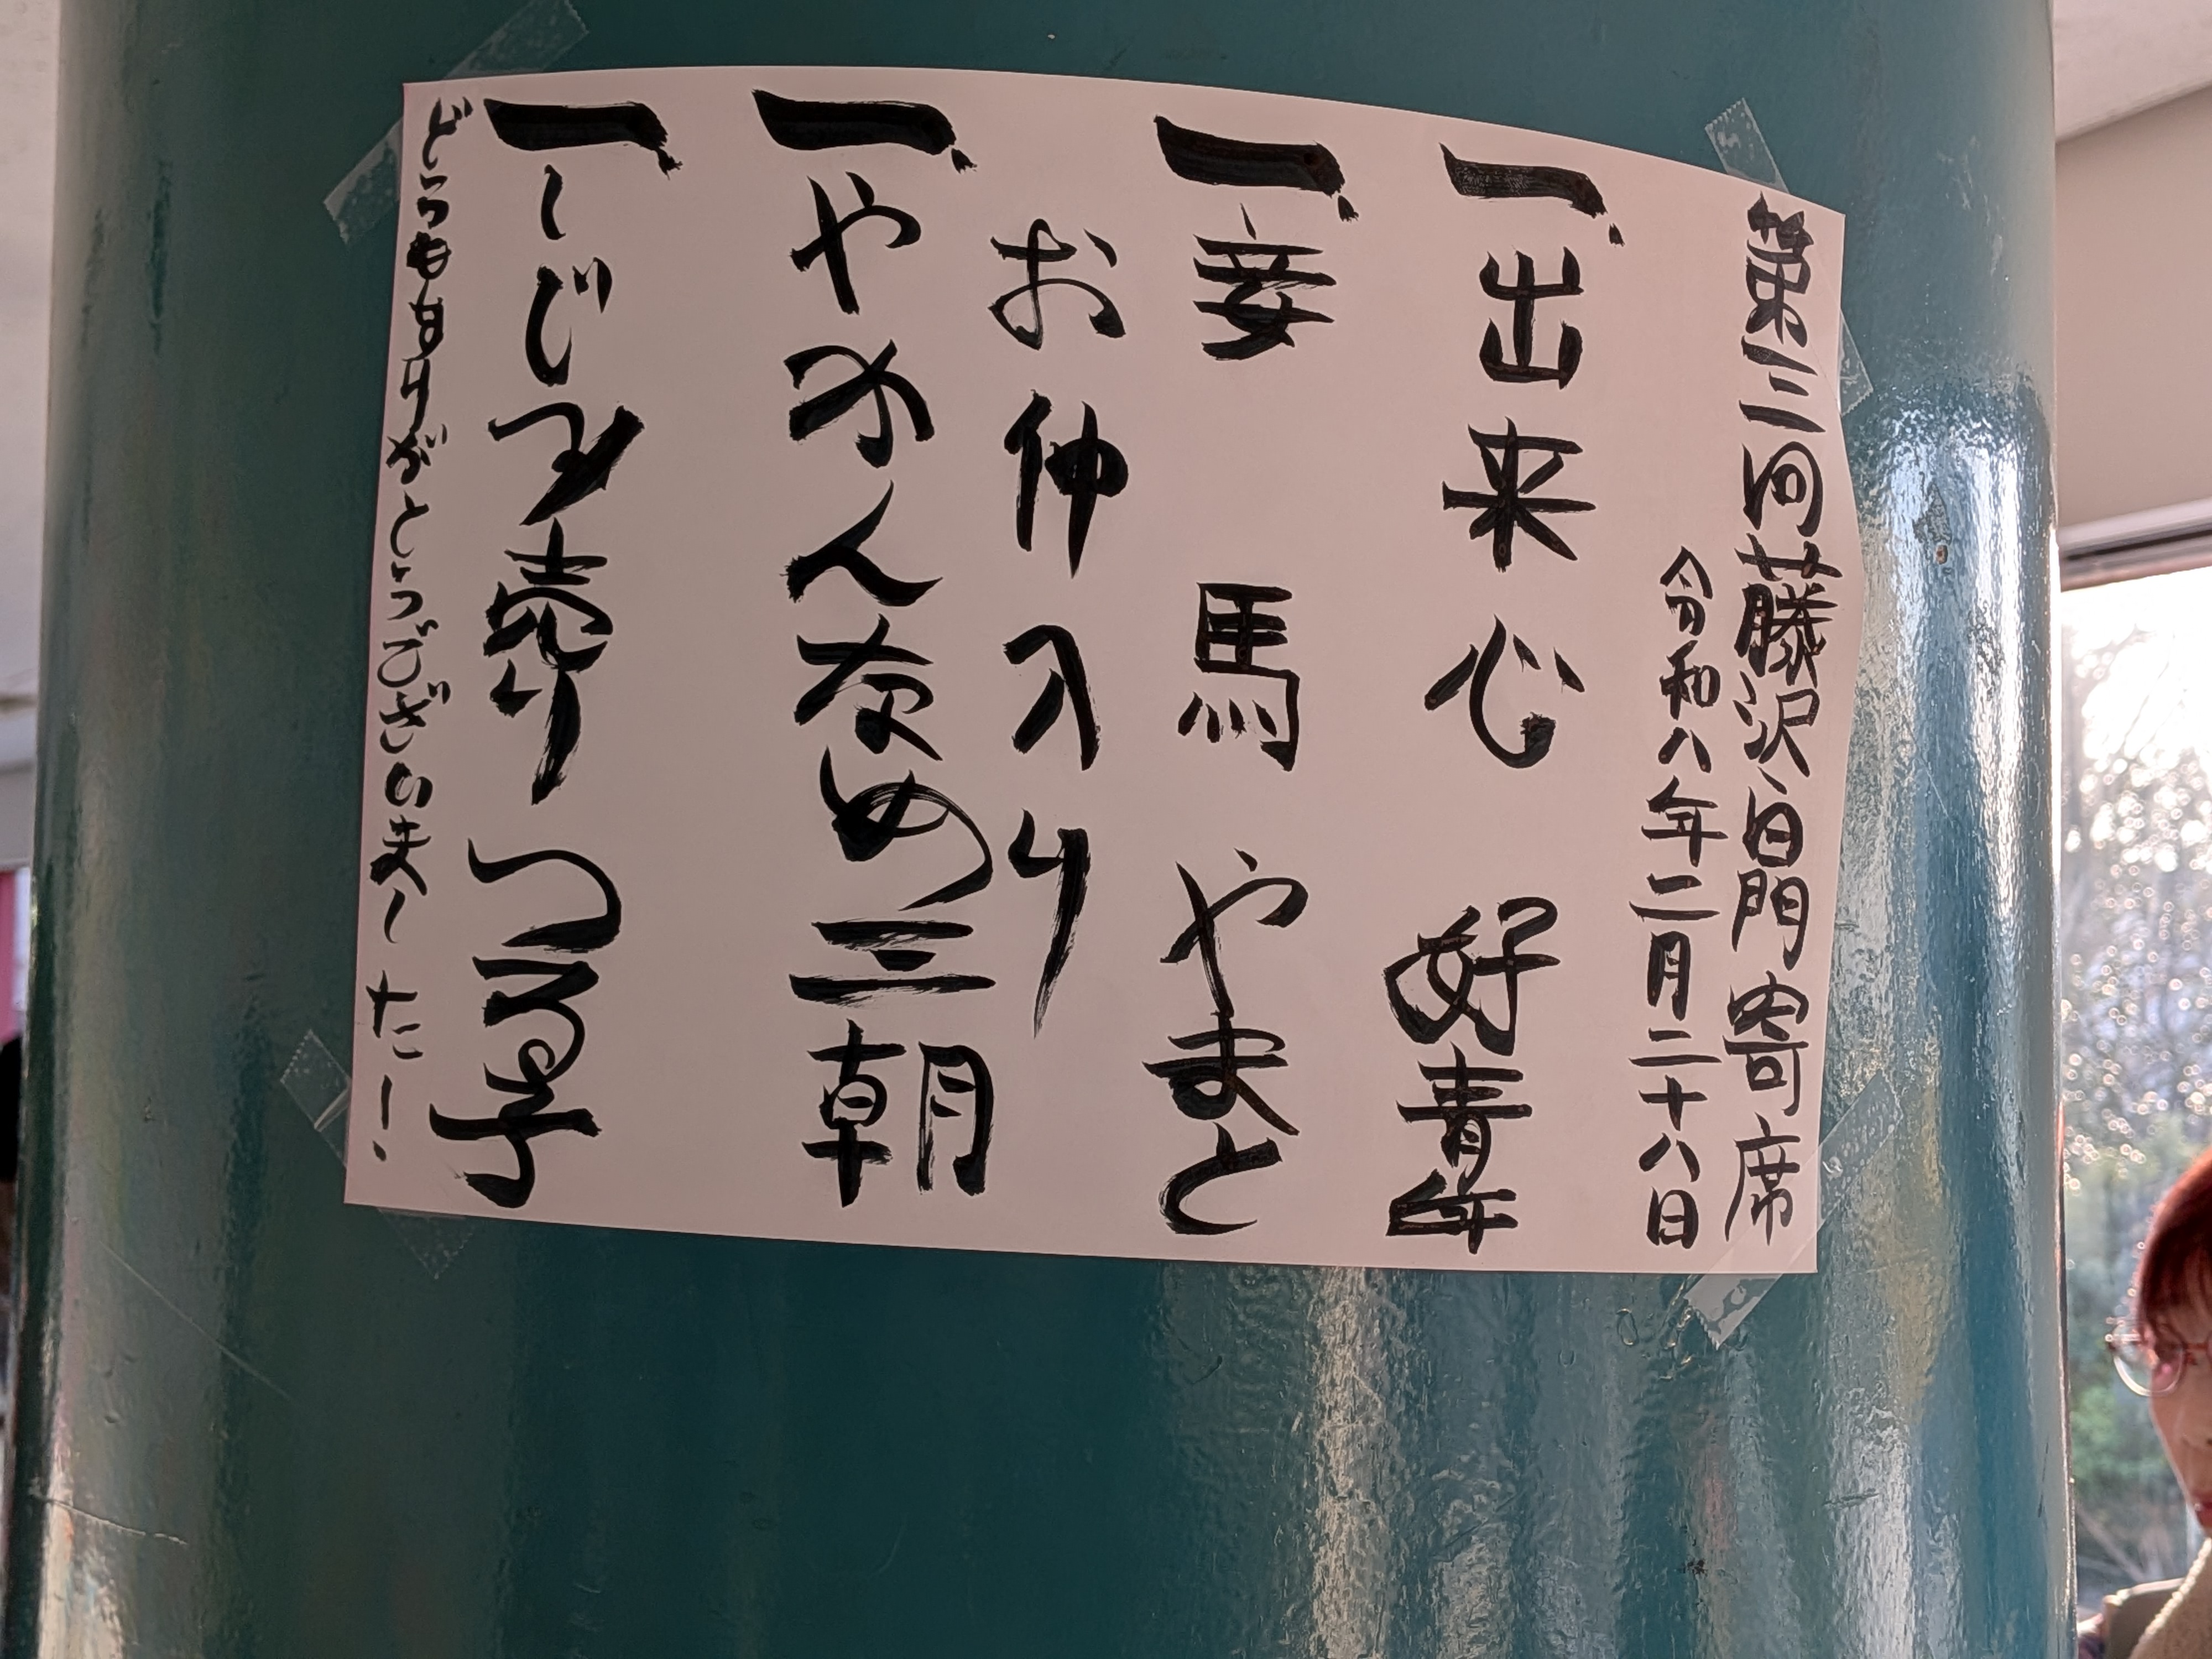 第三回藤沢白門寄席
令和八年二月二十八日
一、出来心 好青年
一、妾馬 やまと
お仲入り
一、やかんなめ 三朝
一、しじみ売り つる子
どうもありがとうございました!